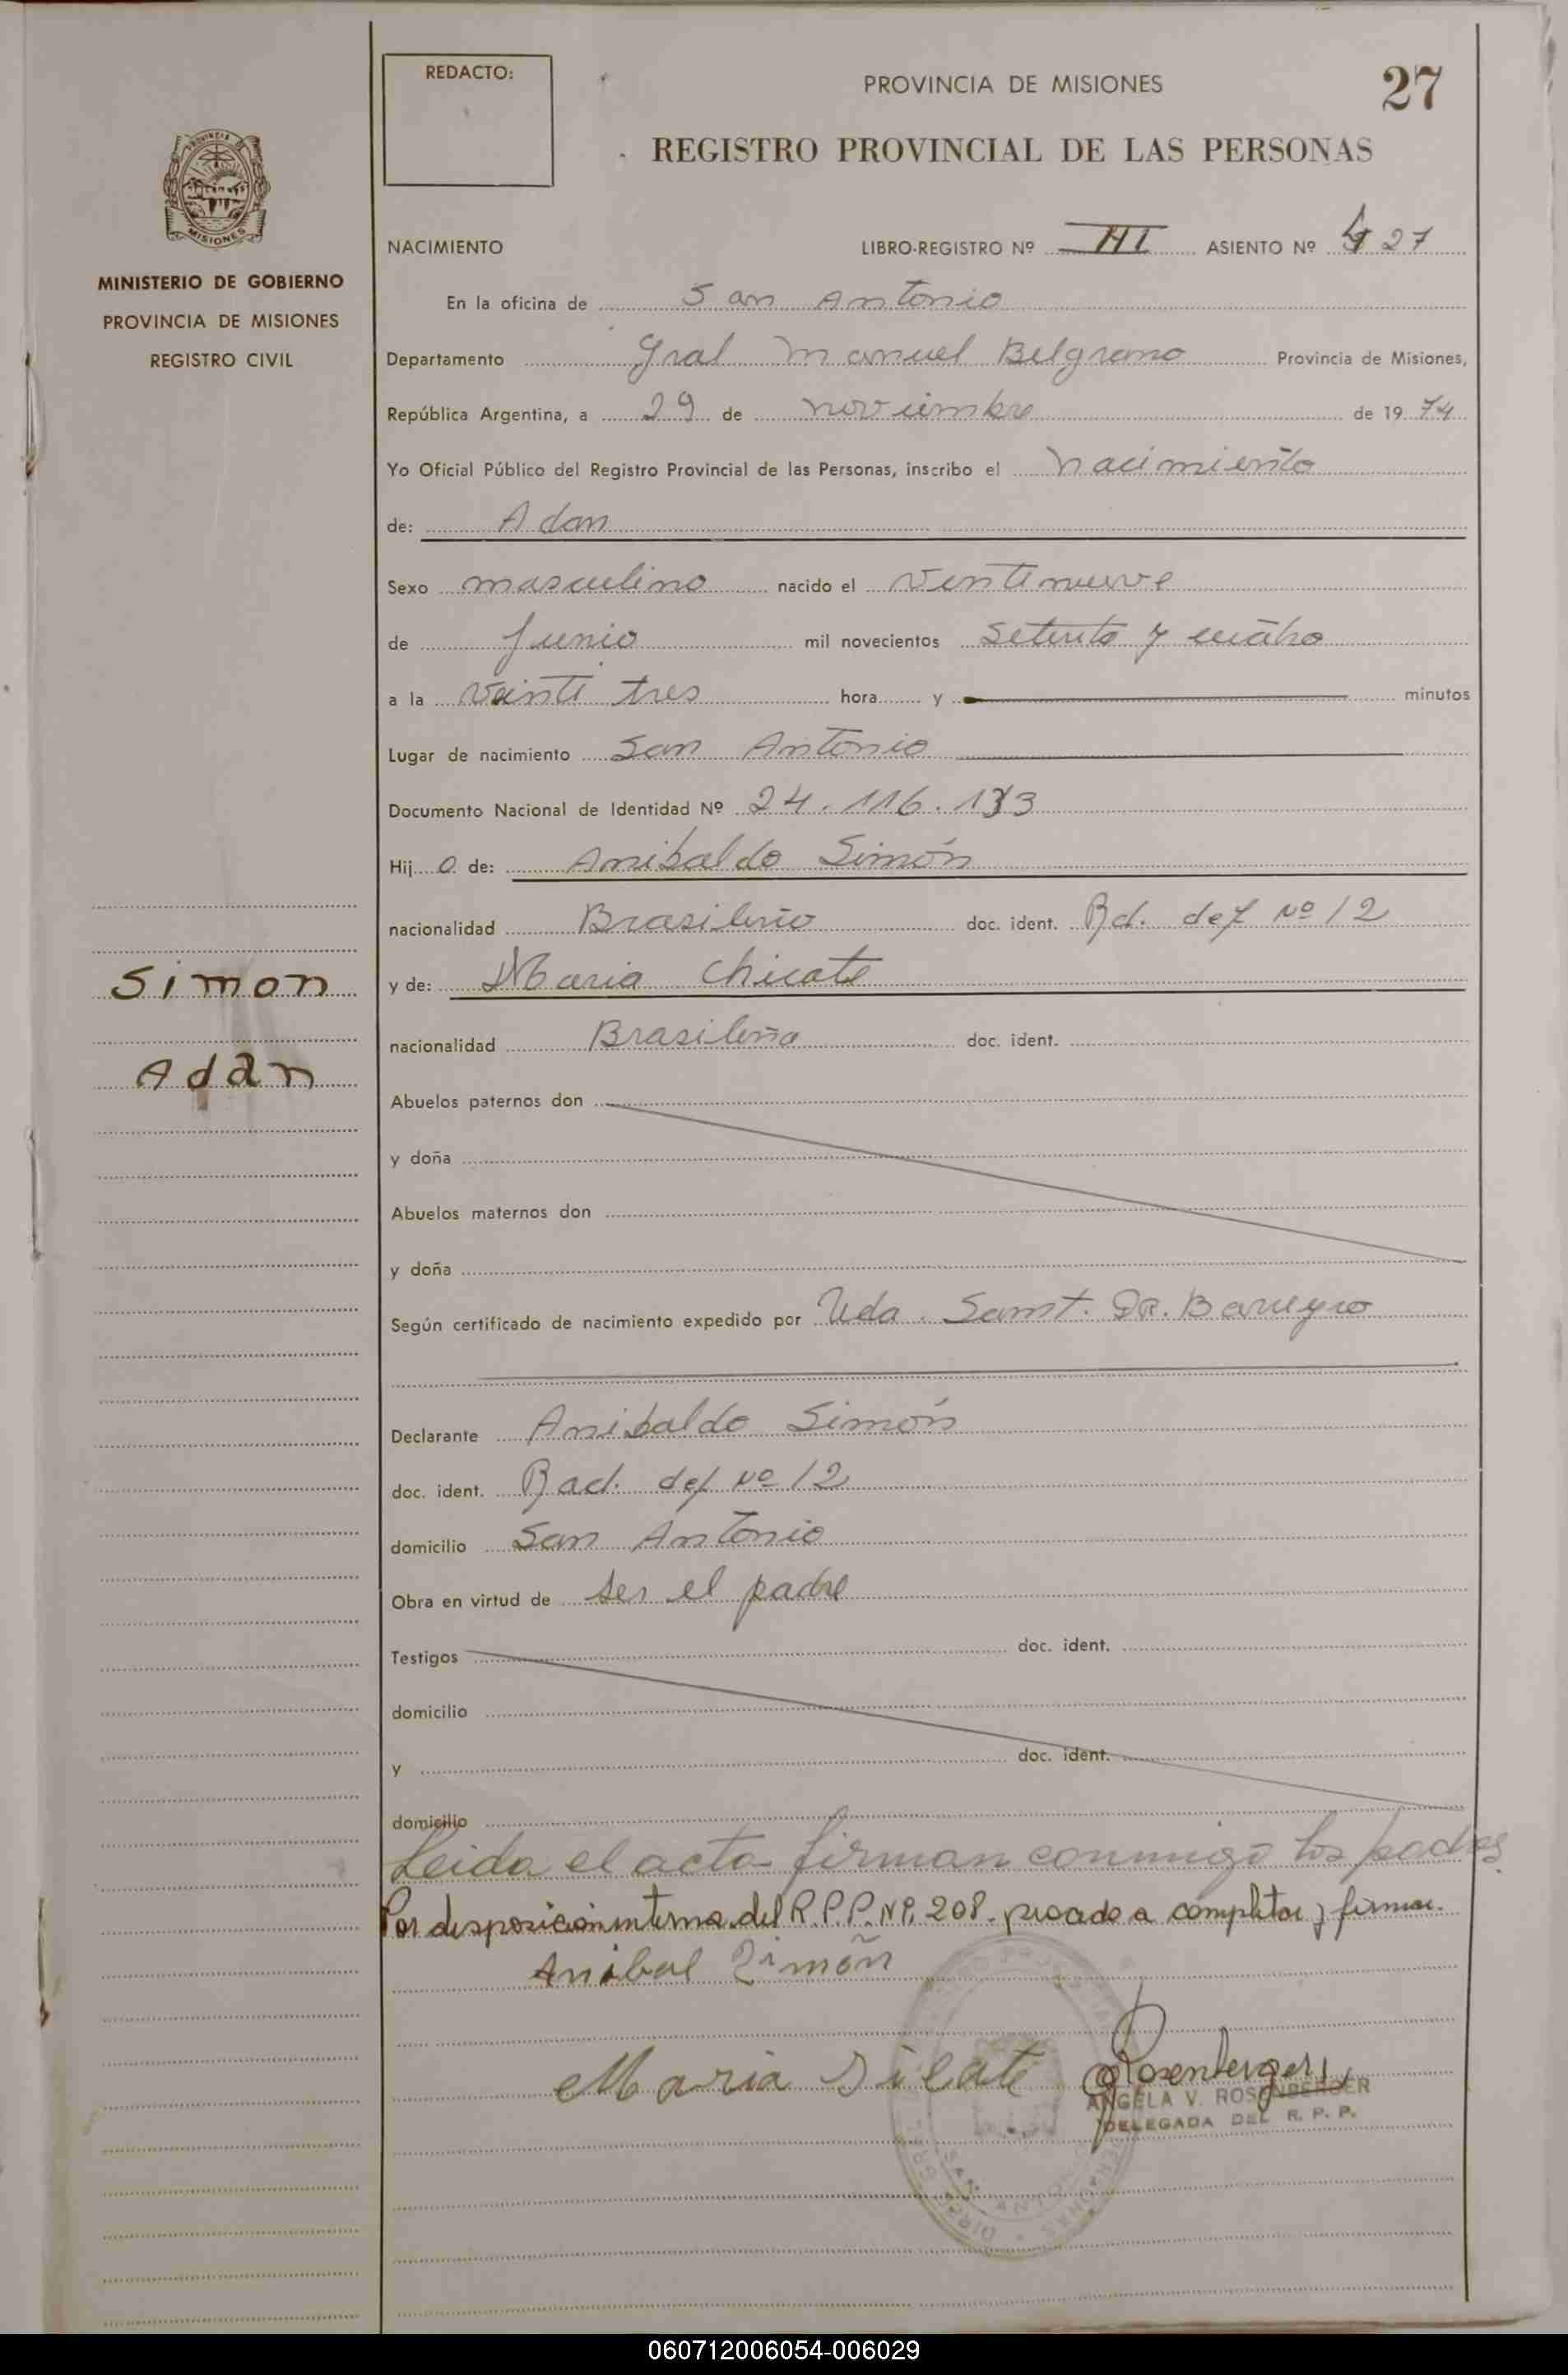 REDACTO:
PROVINCIA DE MISIONES
27
REGISTRO PROVINCIAL DE LAS PERSONAS
PROVINCIA DE
MISIONES
MINISTERIO DE GOBIERNO
PROVINCIA DE MISIONES
REGISTRO CIVIL
NACIMIENTO LIBRO-REGISTRO Nº III ASIENTO Nº 27
En la oficina de San Antonio
Departamento Gral Manuel Belgrano Provincia de Misiones,
República Argentina, a 29 de noviembre de 1974
Yo Oficial Público del Registro Provincial de las Personas, inscribo el nacimiento
de: Adan
Sexo masculino nacido el ventinueve
de Junio mil novecientos setenta y cuatro
a la veinti tres hora y minutos
Lugar de nacimiento San Antonio
Documento Nacional de Identidad Nº 24.116.133
Hijo de: Anibaldo Simón
nacionalidad Brasileño doc. ident. Rd. def Nº 12
y de: Maria Chicate
nacionalidad Brasileña doc. ident.
Simon
Adan
Abuelos paternos don
y doña
Abuelos maternos don
y doña
Según certificado de nacimiento expedido por Uda. Sanit. DR. Barreyro
Declarante Anibaldo Simón
doc. ident. Rad. def Nº 12
domicilio San Antonio
Obra en virtud de ser el padre
Testigos doc. ident.
domicilio
y doc. ident.
domicilio
Leida el acta firman conmigo los padres
Por desposición interna del R.P.P. Nº 208. procedo a completar y firmar.
Anibal Simón
Maria Silate Rosenberger
ANGELA V. ROSENBERGER
DELEGADA DEL R. P. P.
SAN ANTONIO
060712006054-006029